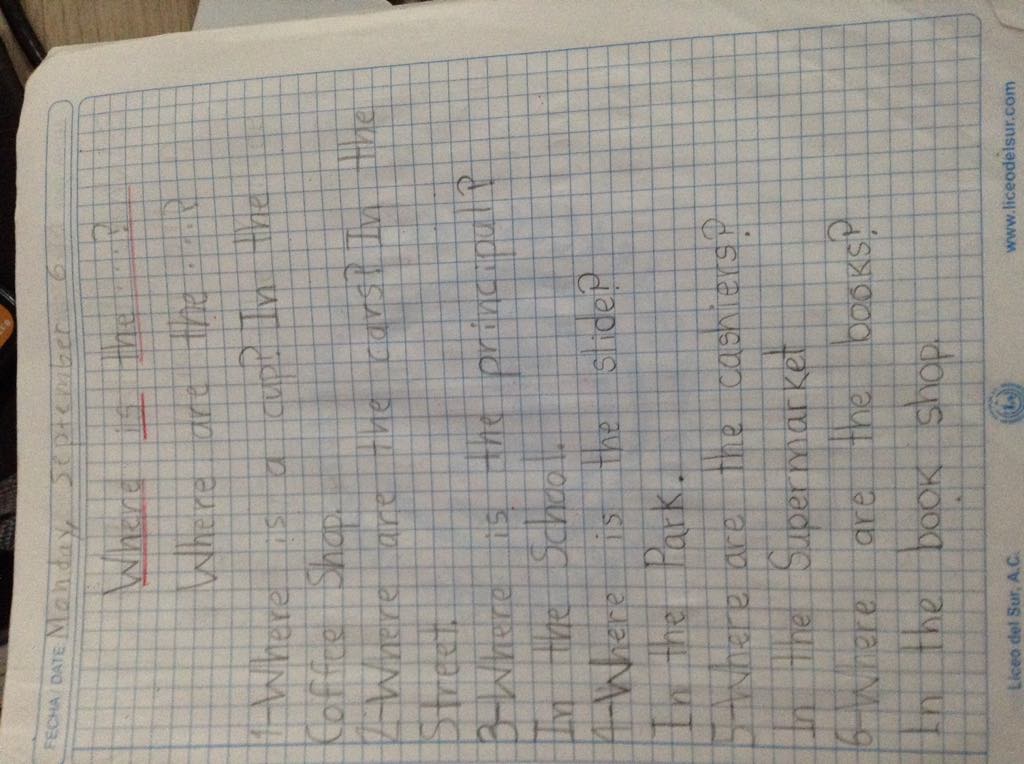 FECHA / DATE: Manday September 6
Where is the ....?
Where are the ....?
1-Where is a cup? In the
Coffee Shop.
2-Where are the cars? In the
Street.
3-Where is the principal?
In the School.
4-Where is the slide?
In the Park.
5-Where are the cashiers?
In the Supermarket
6-Where are the books?
In the book shop.
Liceo del Sur, A.C. www.liceodelsur.com